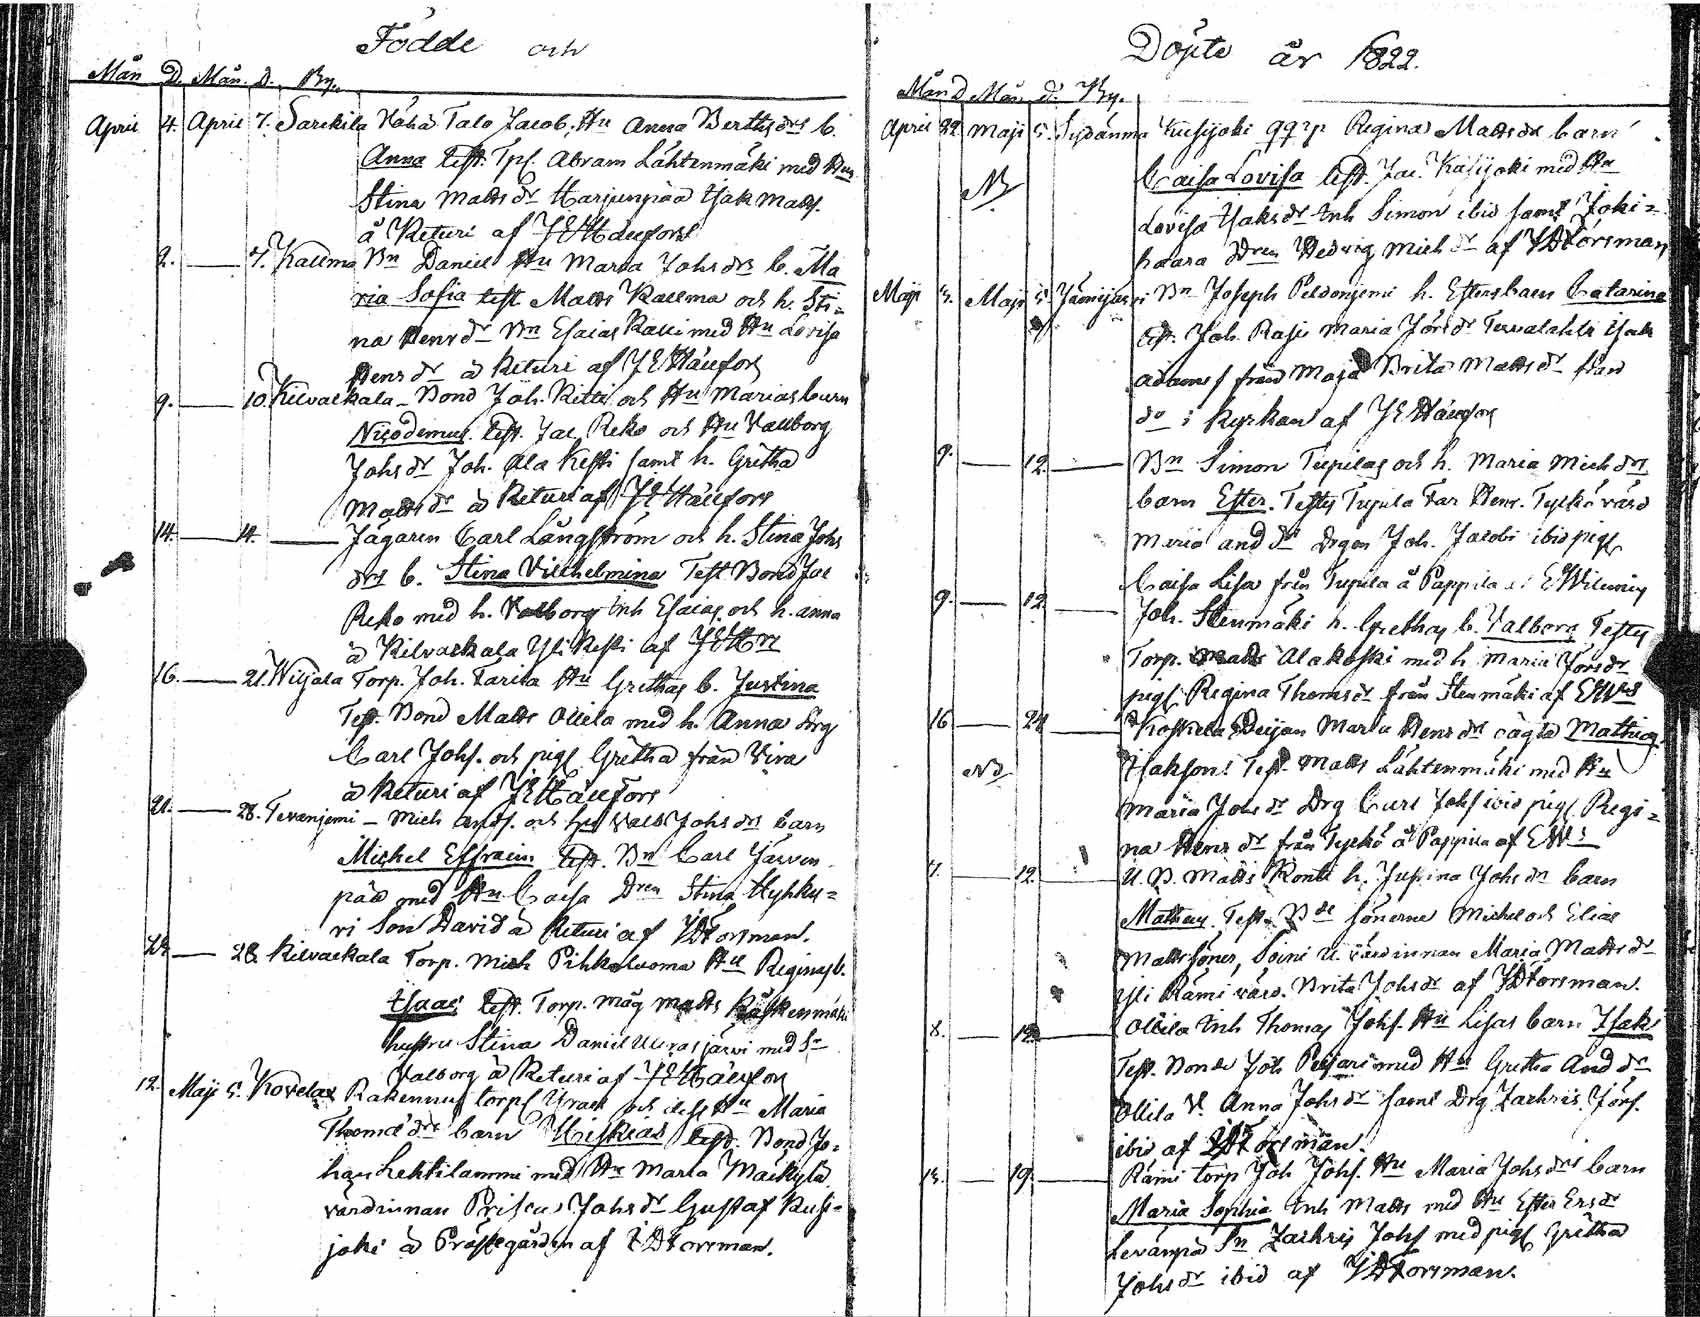 Födde och
Mån D. Mån. D. By.
April 4. April 7. Sarckila Vähä Talo Jacob, Hu Anna Berthsdrs b.
Anna test. Tpr. Abram Lähtenmäki med Hus
Stina Mattsdr Harjunpää Isak Matts.
å Keturi af J E Hällfors
2. — 7. Kallma Bn Daniel Hu Maria Johsdrs b. Ma
ria Sofia test Matts Kallma och h. Sti=
na Henrdr Bn Esaias Kalli med Hu Lovisa
Henrdr å Keturi af J E Hällfors
9. — 10. Kilvackala – Bond Joh. Kitti och Hu Marias barn
Nicodemus. test. Jac Reko och Hu Vallborg
Johsdr Joh. Ala Kesti samt h. Gretha
Mattsdr å Keturi af J E Hällfors
14. — 14. — Jägaren Carl Långström och h. Stina Johs
drs b. Stina Vilhelmina Test Bond Jac
Reko med h. Valborg Inh Esaias och h. Anna
å Kilvackala Yli Kesti af J E H
16. — 21. Wiljala Torp. Joh. Tarila Hu Grethas b. Justina
Test. Bond Matts Ollila med h. Anna drg
Carl Johs. och pig Gretha från Vira
å Keturi af J E Hällfors
21. — 28. Tevanjemi – Mich Ands. och hu Valb Johsdrs barn
Michel Effraim test. Bn Carl Järven
pää med Hu Caisa Dren Stina Hyhky=
ri Son David å Keturi af Forsman.
24 — 28. Kilvackala Torp. Mich Pihkoluoma Hu Reginas b.
Isaac test. Torp. Måg Matts Käskenmäki
hustru Stina Daniel järvi med
Valborg å Keturi af J E Hällfors
12. Maji 5. Kovelax Rakennus torp och dess Hu Maria
Thomædrs barn Hiskias test. Bond Jo=
han Lehtilammi med Hu Maria Mäckylä
värdinnan Prisca Johsdr Gustaf Kusi=
joki å Prästegården af Forsman.
Döpte år 1822.
Mån D Mån d. By.
April 22 Maji 5. Sydänma Kusijoki Regina Mattsdrs barn
NB Caisa Lovisa test. Jac. Kusijoki med Hu
Lovisa Isaksdr Inh Simon ibid samt Joki=
haara Dren Hedvig Michdr af Forsman
Maji 3. Maji 5 Jämijärvi Bn Joseph Peldonjemi h. Esters barn Catarina
test. Joh. Rasi Maria Jörsdr Tervalahti Isak
Adams från Brita Mattsdr från
do i Kyrkan af J E Hällfors
9. — 12. — Bn Simon Tupilas och h. Maria Michdrs
barn Ester. Testes Tupila Far Henr. Tyckö värd
Maria Anddr Drgen Joh. Jacobs ibid pigs
Caisa Lisa från Tupila å Pappila af
9. — 12. — Joh. Stenmäki h. Grethas b. Valborg Testes
Torp. Matts Alakoski med h. Maria Jörsdr
pigs Regina Thomsdr från Stenmäki af
16 — 24 — Koskela Pigan Maria Henrdr oägta Mathias
NB Isakson. Test. Matts Lähtenmäki med Hu
Maria Johsdr Drg Carl Johs ibid pigs Regi=
na Henrdr från Tyckö å Pappila af
7. — 12. — U. B. Matts Konti h. Jusina Johsdrs barn
Matheus. Test. Bde Sönerne Michel och Elias
Mattssöner, Soini U. värdinnan Maria Mattsdr
Yli Rämi värd. Brita Johsdr af Forsman.
8. — 12. — Ollila Inh Thomas Johs. Hu Lisas barn Isak
Test. Bonde Joh Peljari med Hu Gretha Anddr
Ollila V. Anna Johsdr samt Drg Zachris Jörs.
ibid af Forsman.
13. — 19. — Rämi torp Joh Johs. Hu Maria Johsdrs barn
Maria Sophia Inh Matts med Hu Ester Ersdr
Levänpä Sn Zachris Johs med pigs Gretha
Johsdr ibid af Forsman.